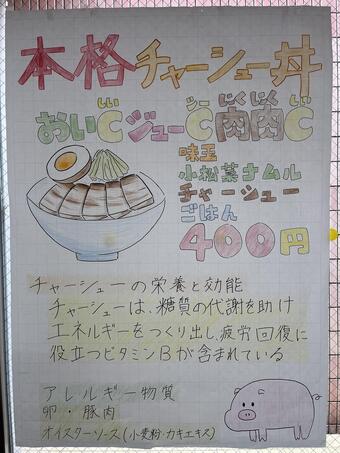 本格チャーシュー丼
しい シー にくにく しー
おいCジューC肉肉C
味玉
小松菜ナムル
チャーシュー
ごはん
400円
チャーシューの栄養と効能
チャーシューは、糖質の代謝を助け
エネルギーをつくり出し、疲労回復に
役立つビタミンBが含まれている
アレルギー物質
卵・豚肉
オイスターソース(小麦粉・カキエキス)